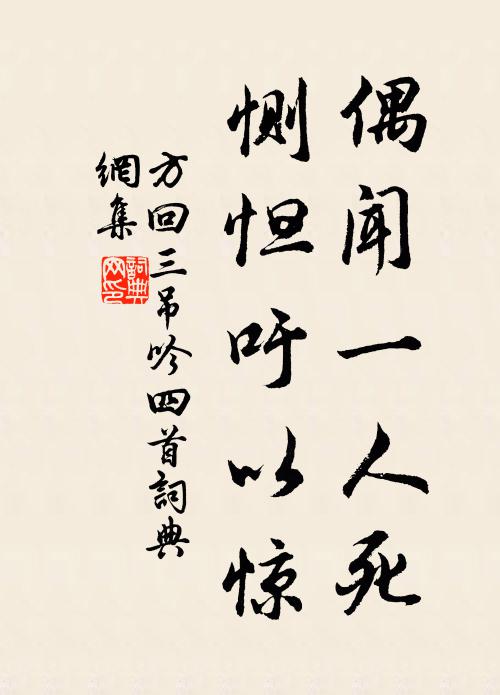 偶闻一人死
恻怛吁以惊
方回三吊吟四首詞典
網集
詞典
网印